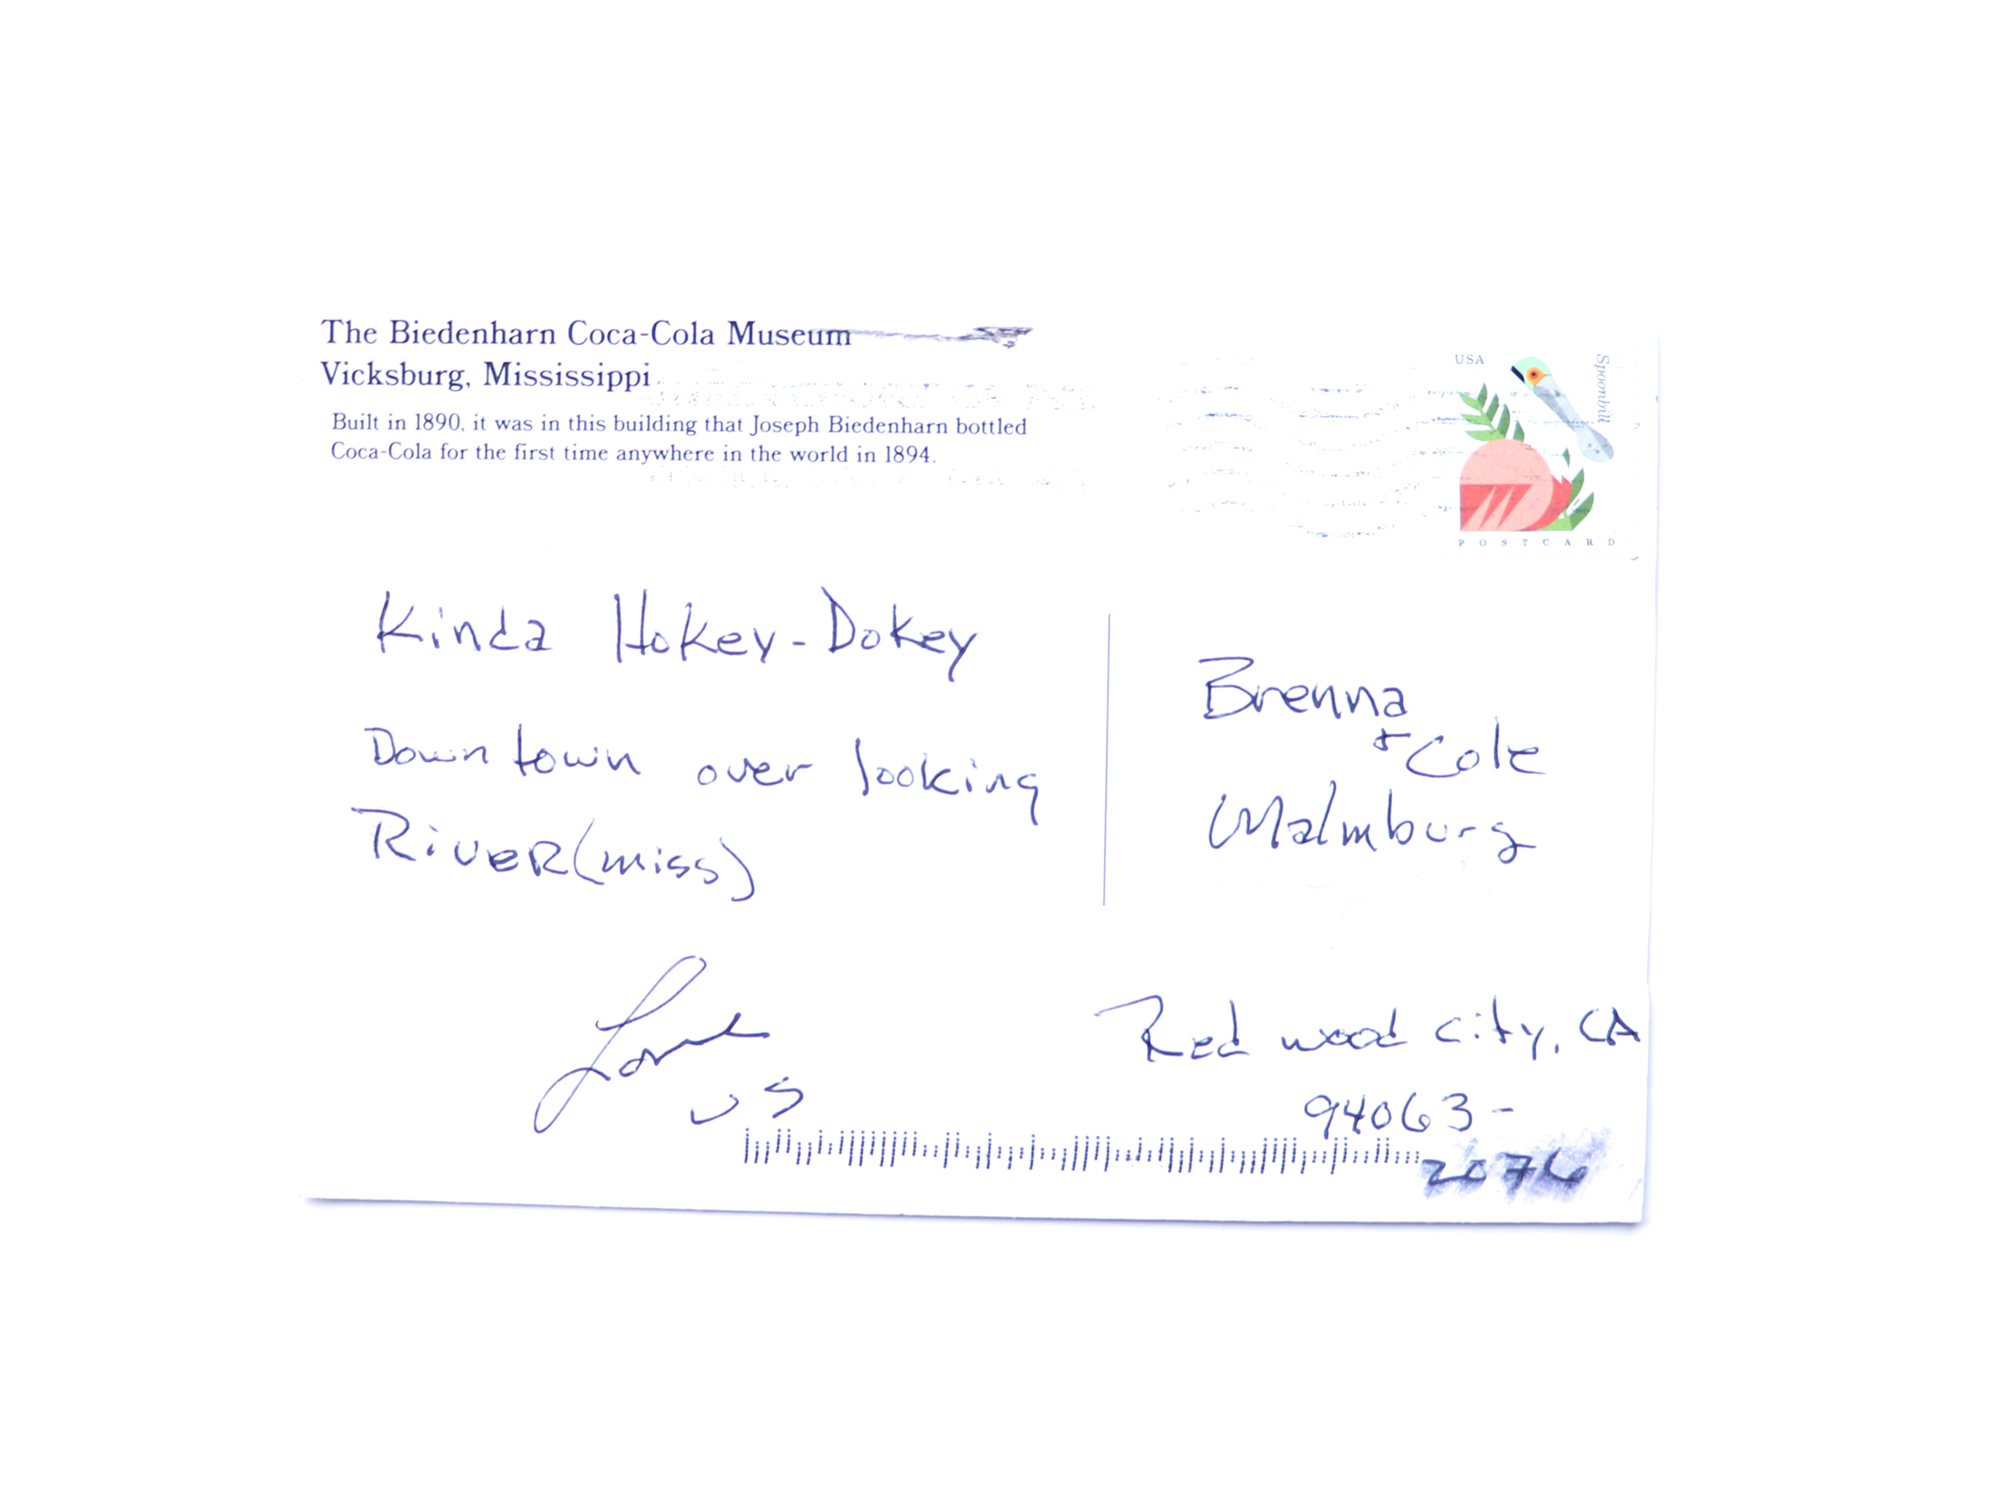 The Biedenharn Coca-Cola Museum
Vicksburg, Mississippi
Built in 1890, it was in this building that Joseph Biedenharn bottled
Coca-Cola for the first time anywhere in the world in 1894.
USA
Spoonbill
POSTCARD
Kinda Hokey-Dokey
Down town over looking
RiVER (miss)
Love
US
Brenna
+ Cole
Malmburg
Red wood city, CA
94063-
2076